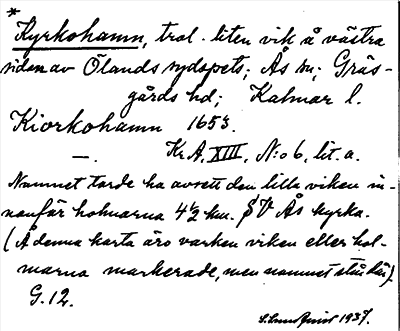 *
Kyrkohamn, trol. liten vik å västra
sidan av Ölands sydspets; Ås sn; Gräs-
gårds hd; Kalmar l.
Kiorkohamn 1653.
—. Kr.A, XIII, N:o 6, lit. a.
Namnet torde ha avsett den lilla viken in-
nanför holmarna 4½ km. SV Ås kyrka.
(Å denna karta äro varken viken eller hol-
marna markerade, men namnet står här).
G. 12.
1937.